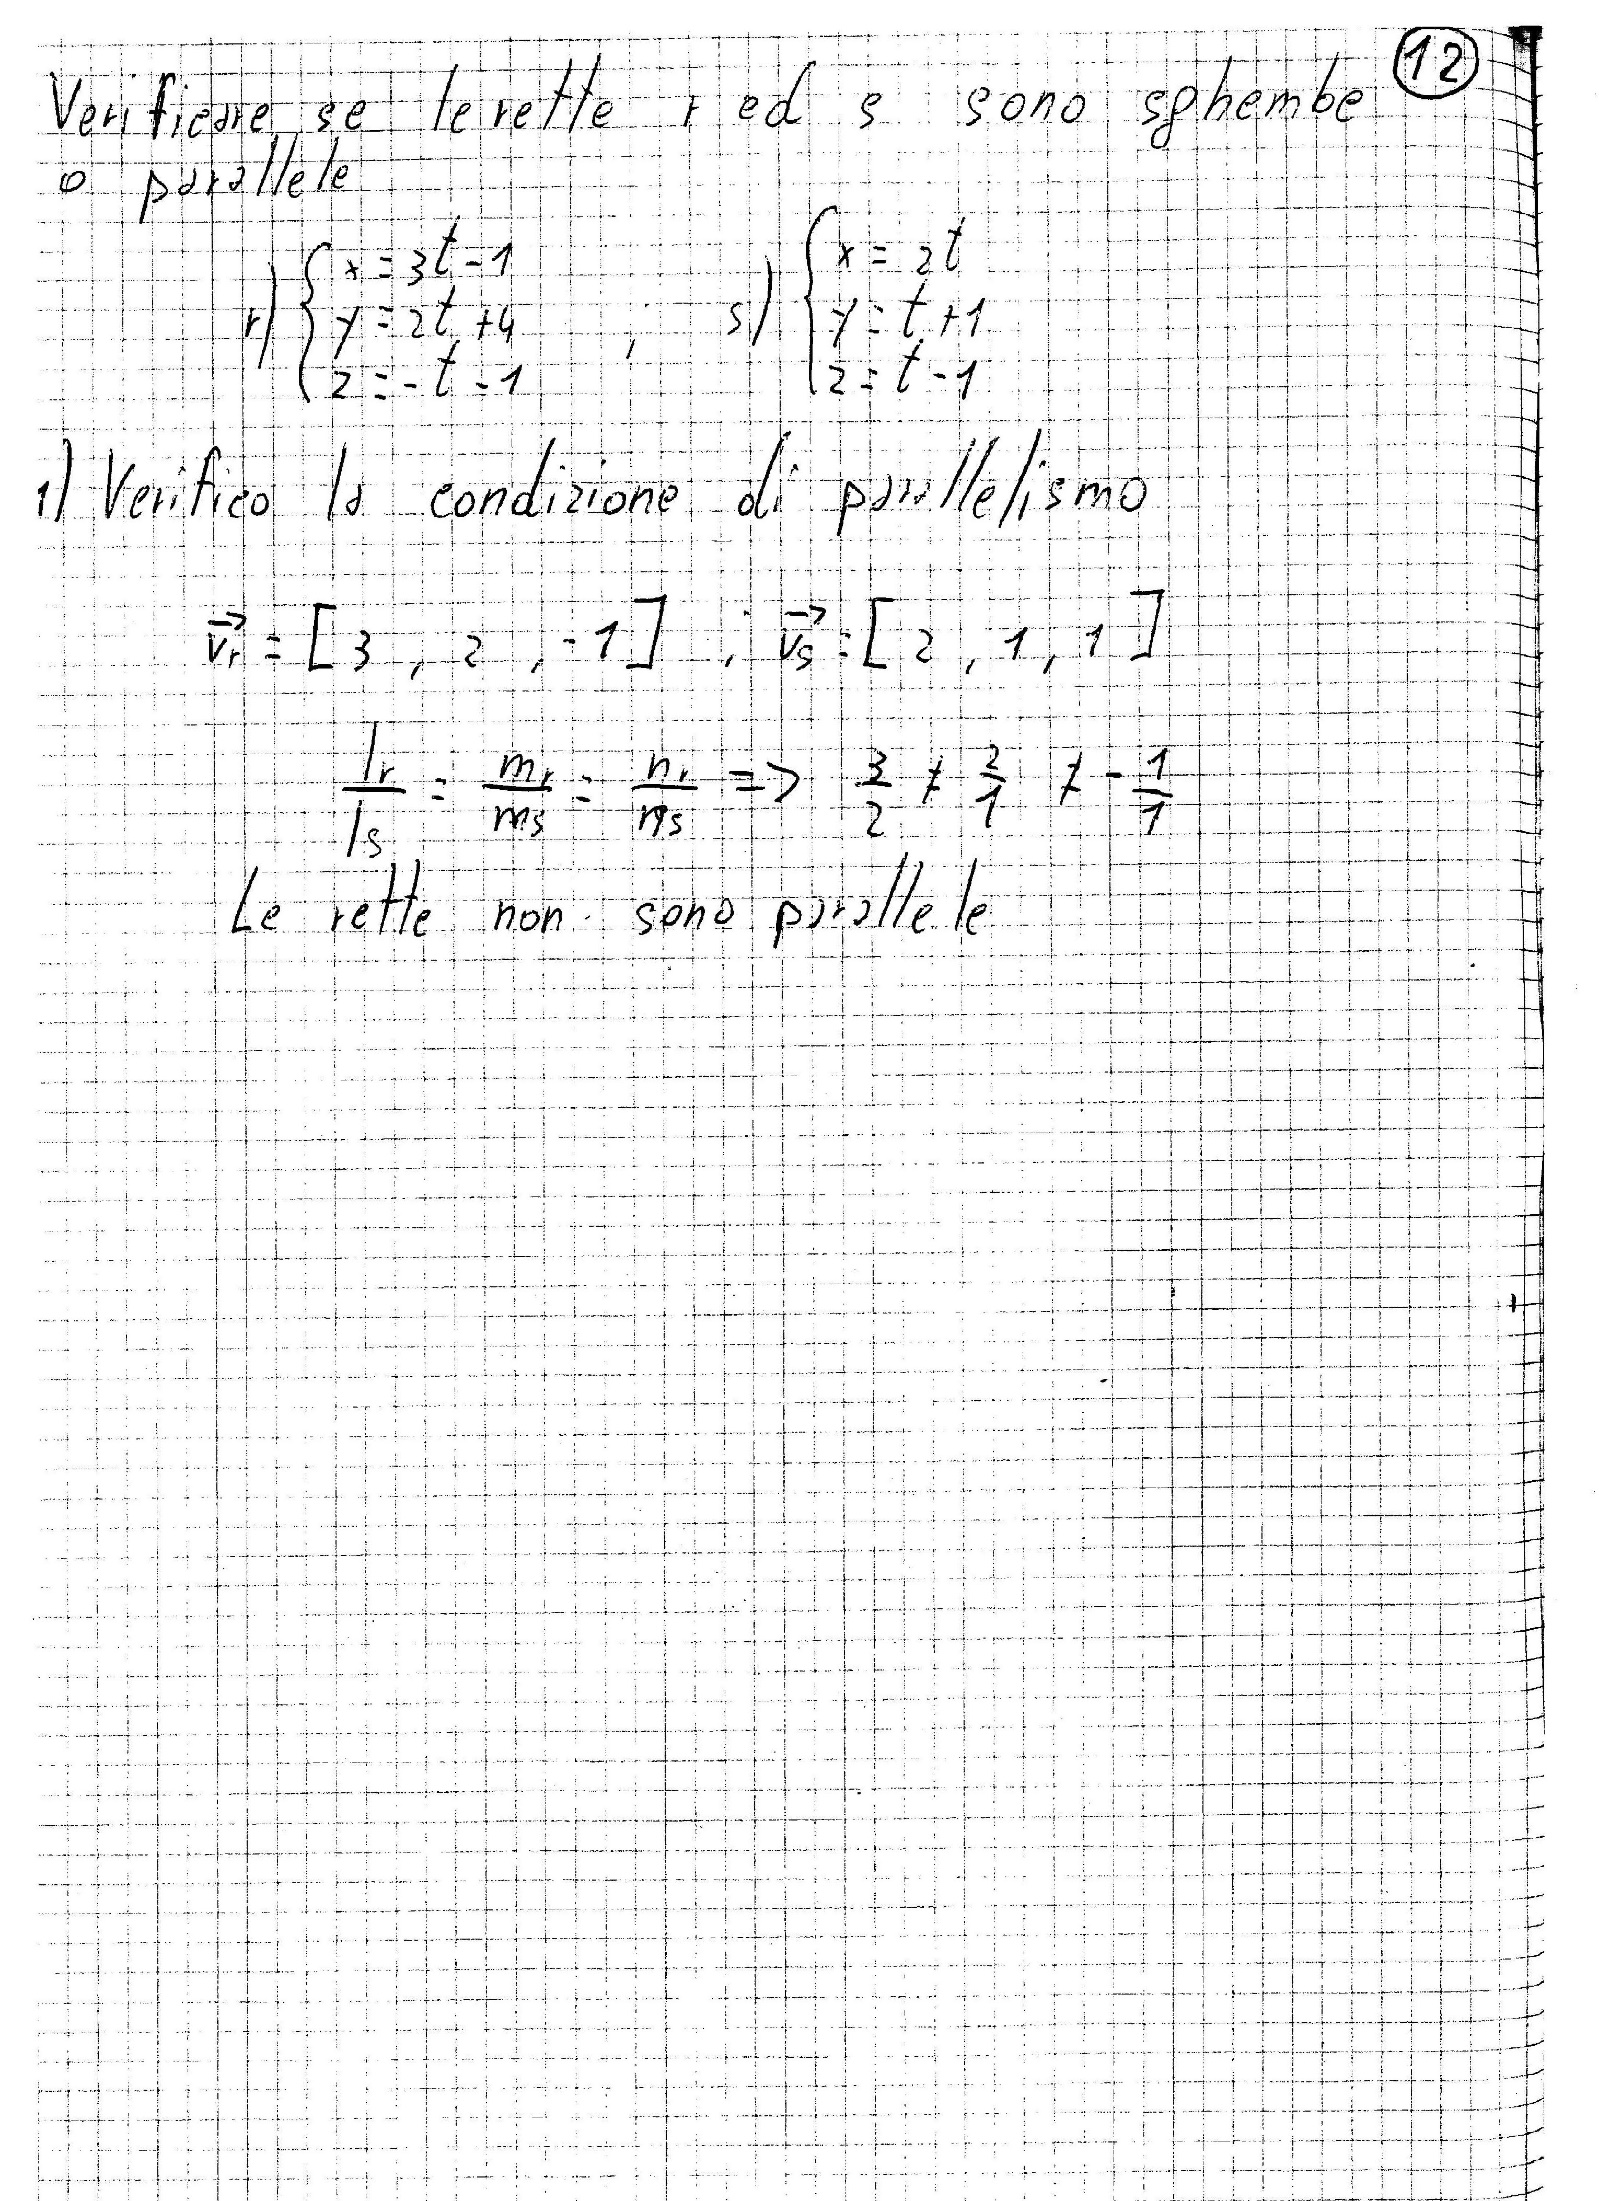 12
Verificare se le rette r ed s sono sghembe
o parallele
r) { x = 3t - 1 ; s) { x = 2t
y = 2t + 4 y = t + 1
z = -t - 1 z = t - 1
1) Verifico la condizione di parallelismo
v⃗r = [3, 2, -1] ; v⃗s = [2, 1, 1]
lr/ls = mr/ms = nr/ns => 3/2 ≠ 2/1 ≠ -1/1
Le rette non sono parallele